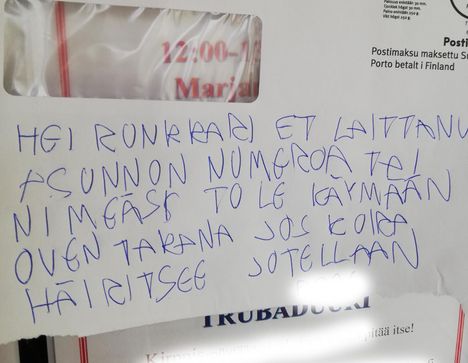 Posti
Postimaksu maksettu
Porto betalt i Finland
12:00-
Marja
HEI RONKKARI ET LAITTANU
ASUNNON NUMEROA TAI
NIMEÄSI TO LE KÄYMÄÄN
OVEN TAKANA JOS KOIRA
HÄIRITSEE JOTELLAAN
TRUBADUURI
pitää itse!